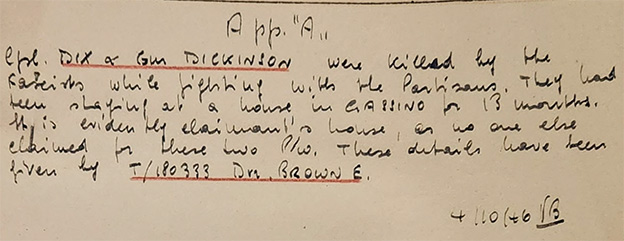 App. "A"
Cpl. DIX & Gnr DICKINSON were killed by the
Fascists while fighting with the Partisans. They had
been staying at a house in GASSINO for 13 months.
It is evidently claimant's house, as no one else
claimed for these two P/W. These details have been
given by T/180333 Dvr. BROWN E.
4/10/46